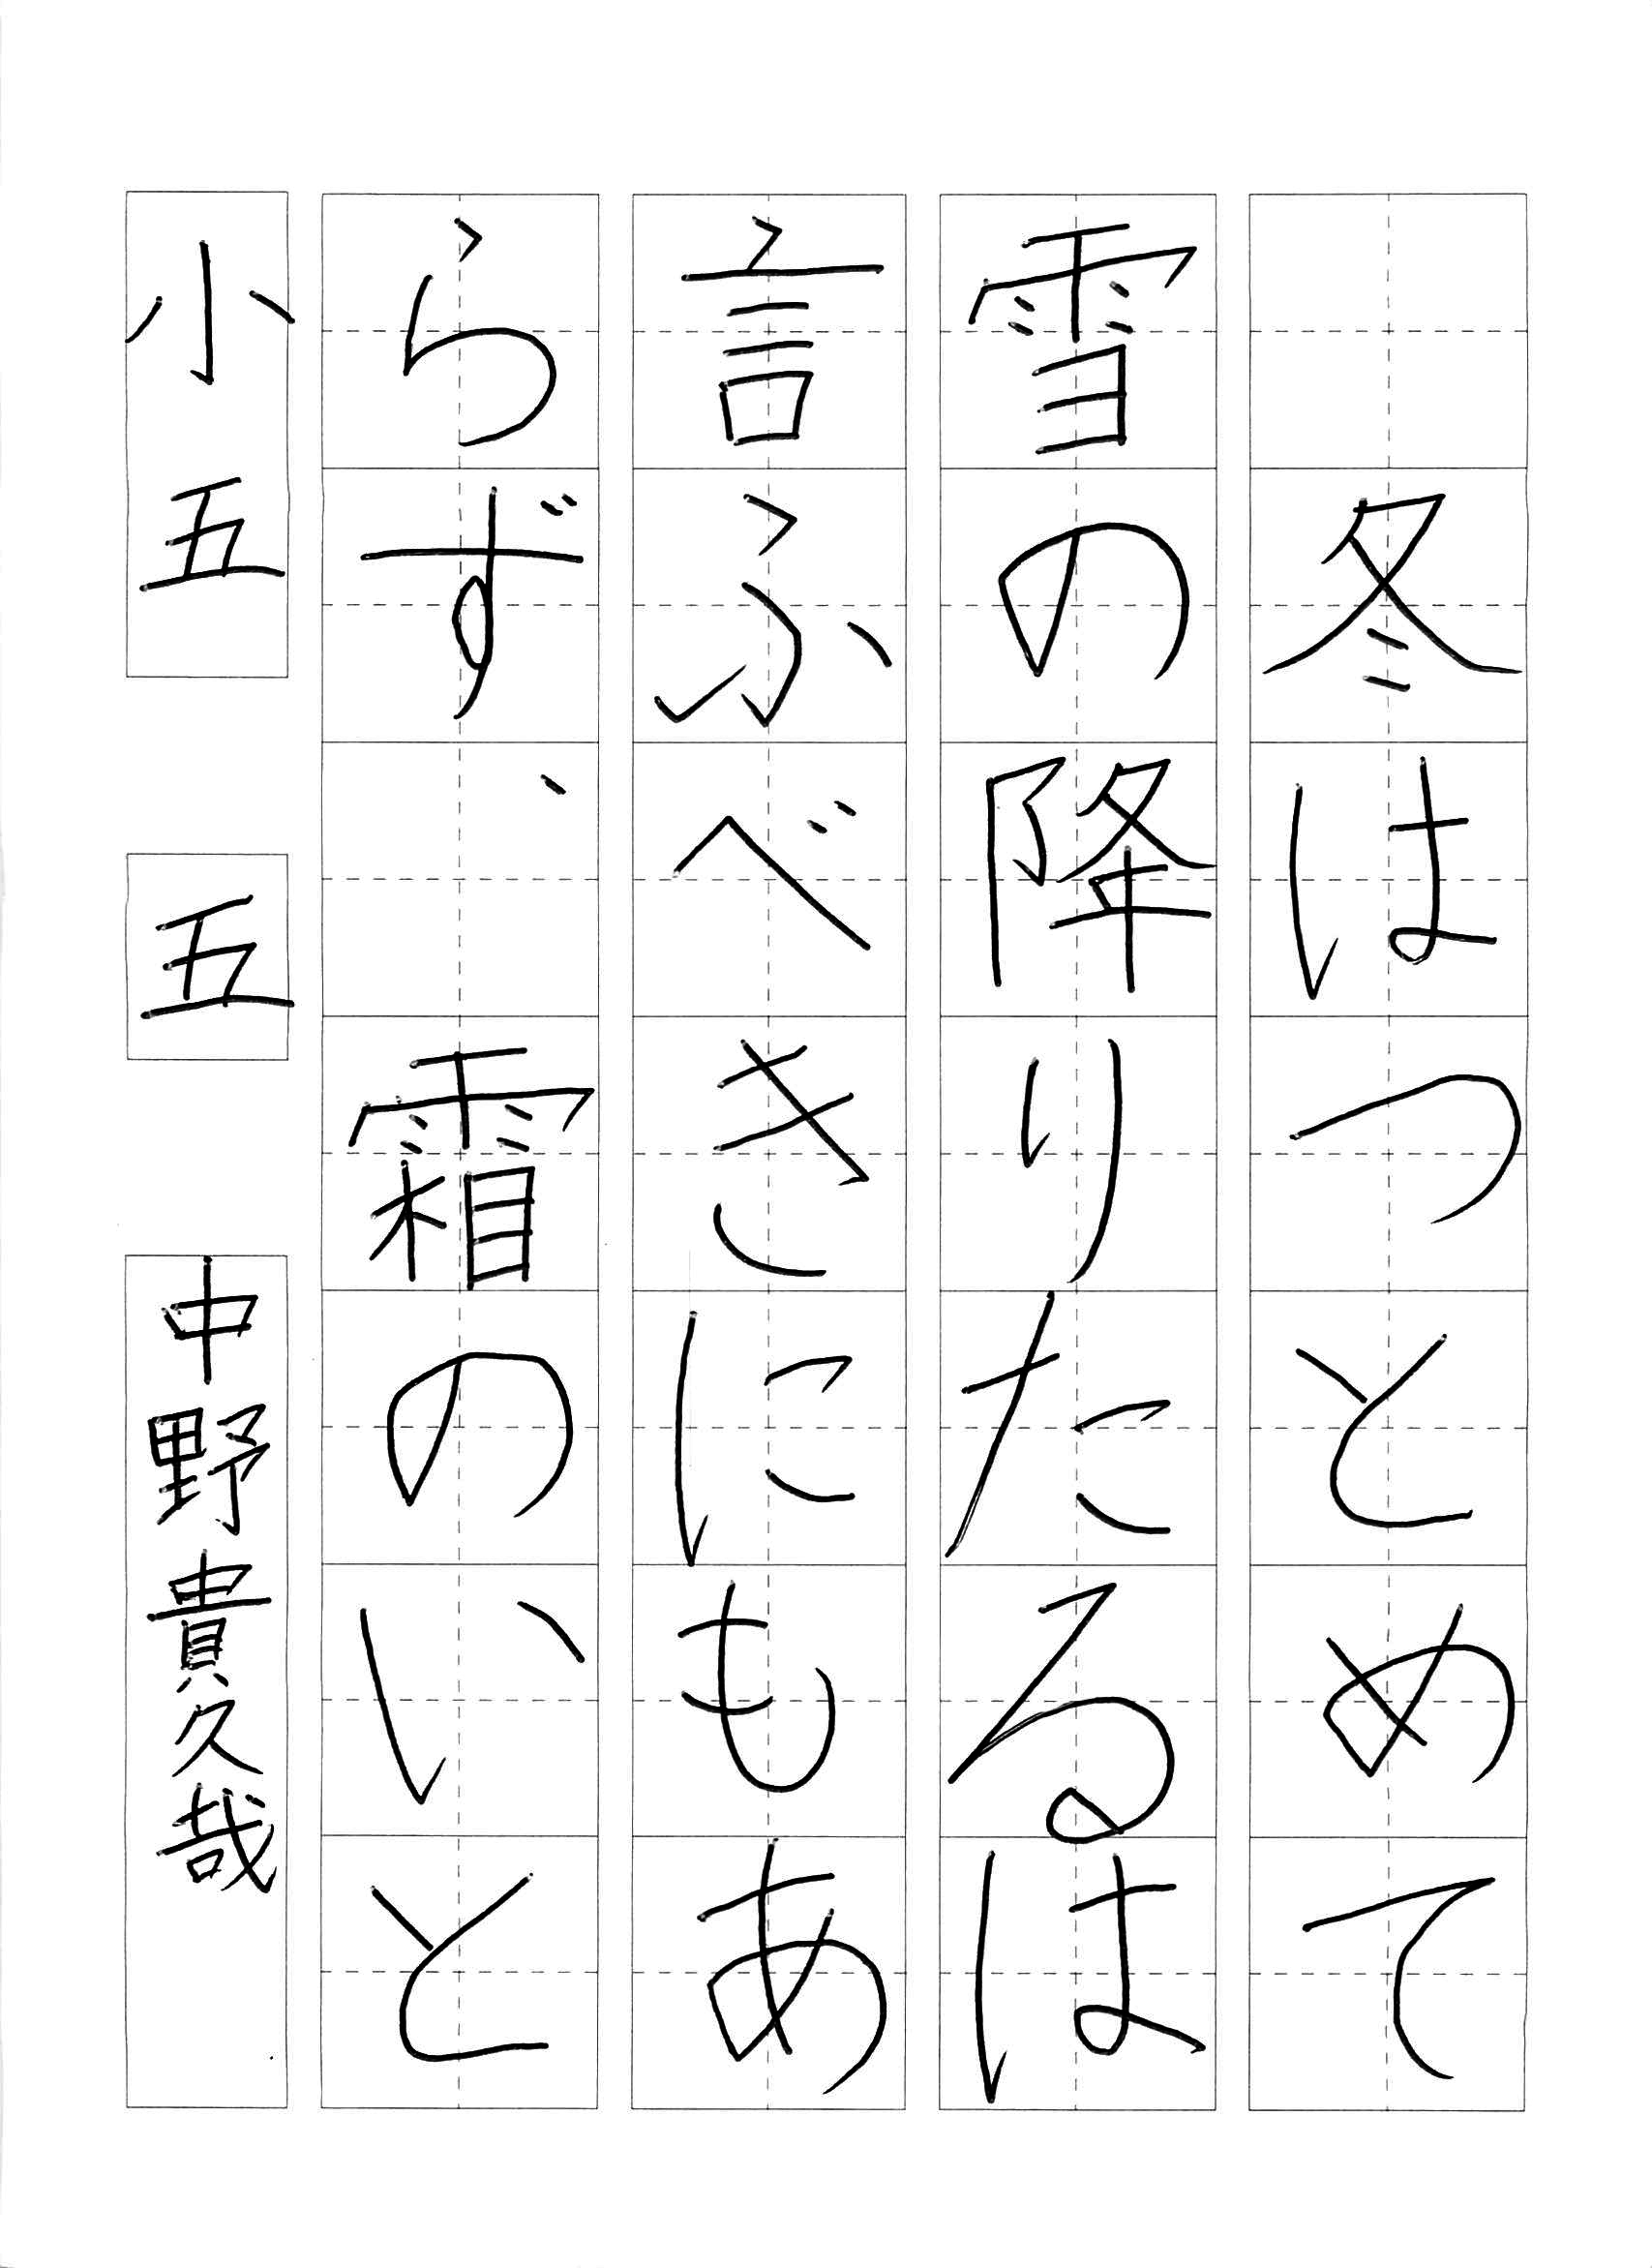 冬はつとめて
雪の降りたるは
言ふべきにもあ
らず、霜のいと
小五 五 中野貴久哉